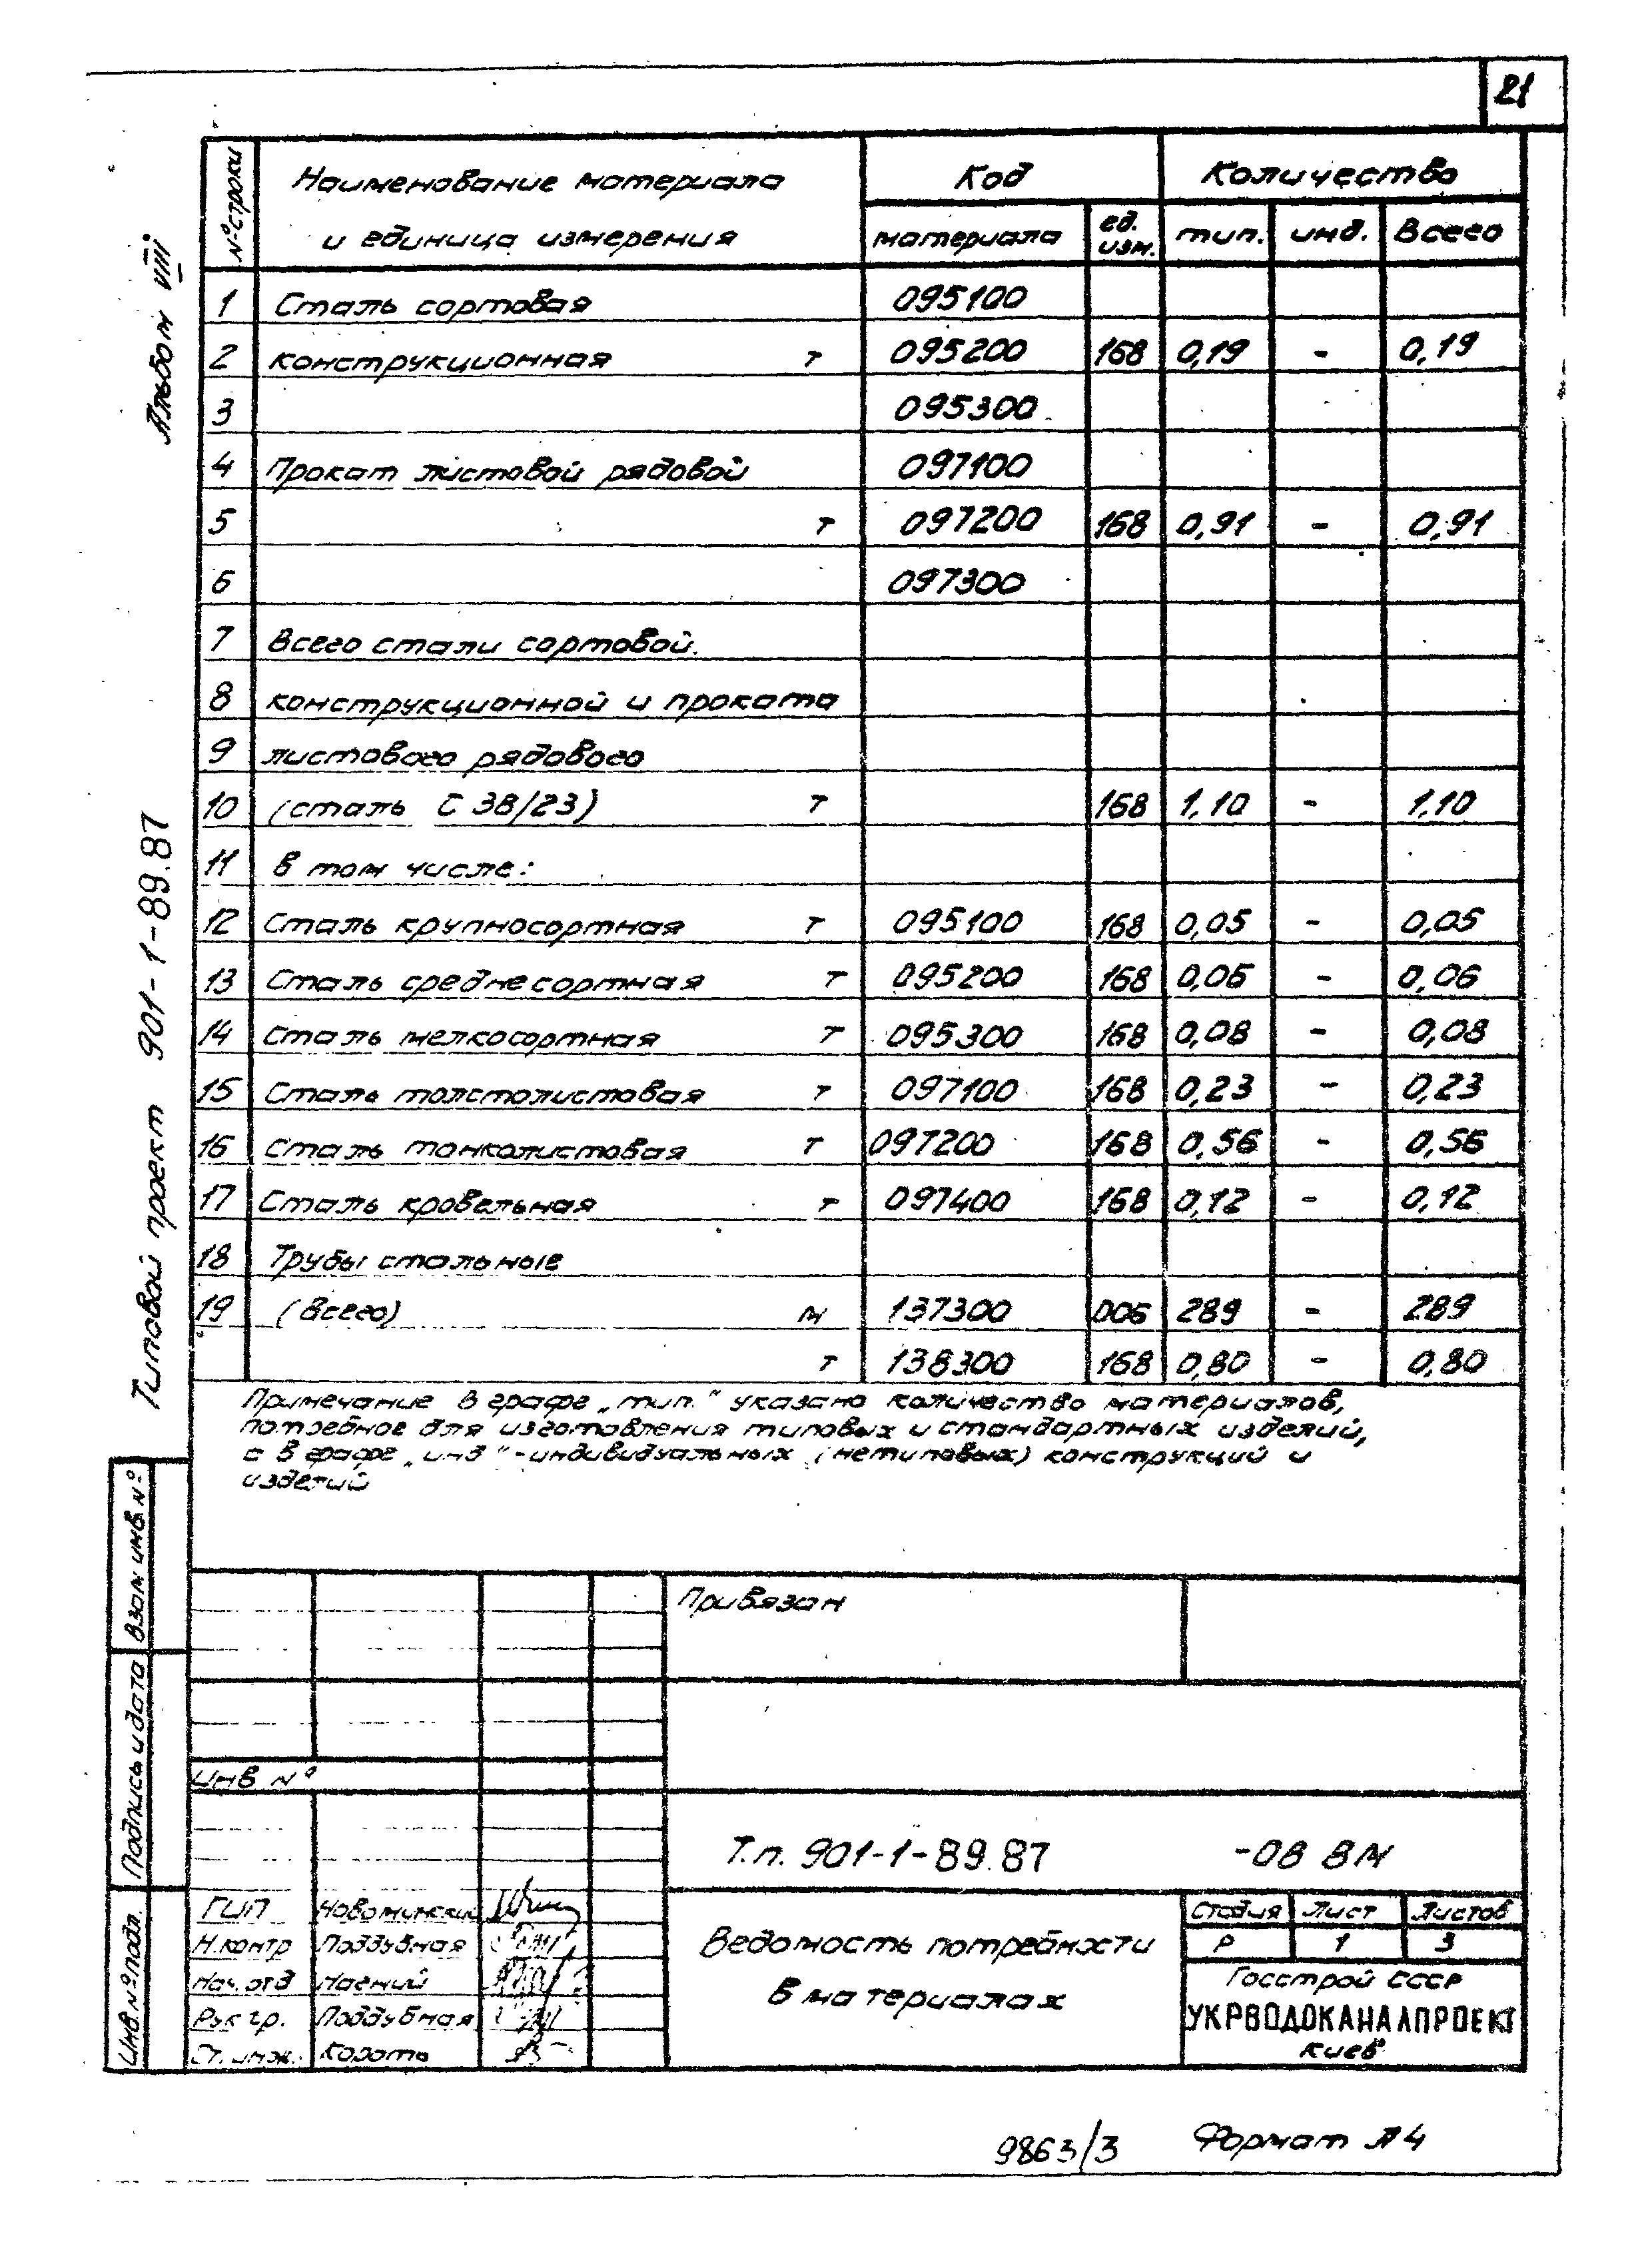 21
Альбом VIII
Типовой проект 901-1-89.87
№ строки Наименование материала и единица измерения Код Количество
материала ед. изм. тип. инд. Всего
1 Сталь сортовая 095100
2 конструкционная т 095200 168 0,19 - 0,19
3 095300
4 Прокат листовой рядовой 097100
5 т 097200 168 0,91 - 0,91
6 097300
7 Всего стали сортовой
8 конструкционной и проката
9 листового рядового
10 (сталь С 38/23) т 168 1,10 - 1,10
11 в том числе:
12 Сталь крупносортная т 095100 168 0,05 - 0,05
13 Сталь среднесортная т 095200 168 0,06 - 0,06
14 Сталь мелкосортная т 095300 168 0,08 - 0,08
15 Сталь толстолистовая т 097100 168 0,23 - 0,23
16 Сталь тонколистовая т 097200 168 0,56 - 0,56
17 Сталь кровельная т 097400 168 0,12 - 0,12
18 Трубы стальные
19 (всего) м 137300 006 289 - 289
т 138300 168 0,80 - 0,80
Примечание В графе „тип." указано количество материалов,
потребное для изготовления типовых и стандартных изделий,
а в графе „инд" - индивидуальных (нетиповых) конструкций и
изделий
Взам инв. №
Подпись и дата
Инв. № подл.
Привязан
Инв №
Т.п. 901-1-89.87 -08 ВМ
ГИП Новоминский
Н.контр Поддубная
Нач. отд Нагний
Рук гр. Поддубная
Ст. инж. Короть
Ведомость потребности
в материалах
Стадия Лист Листов
Р 1 3
Госстрой СССР
УКРВОДОКАНАЛПРОЕКТ
Киев
9863/3 Формат А4